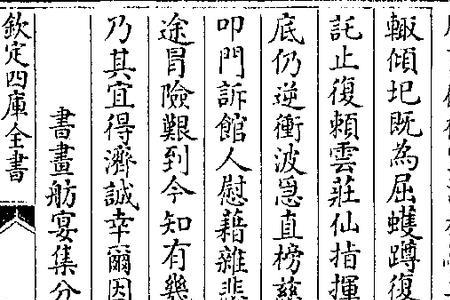 輙傾圮既為屈蠖蹲復
託止復頼雲莊仙指揮
底仍逆衝波急直榜慈
叩門訴館人慰藉雜悲
途冒險艱到今知有幾
乃其宜得濟誠幸爾因
書畫舫宴集分
欽定四庫全書